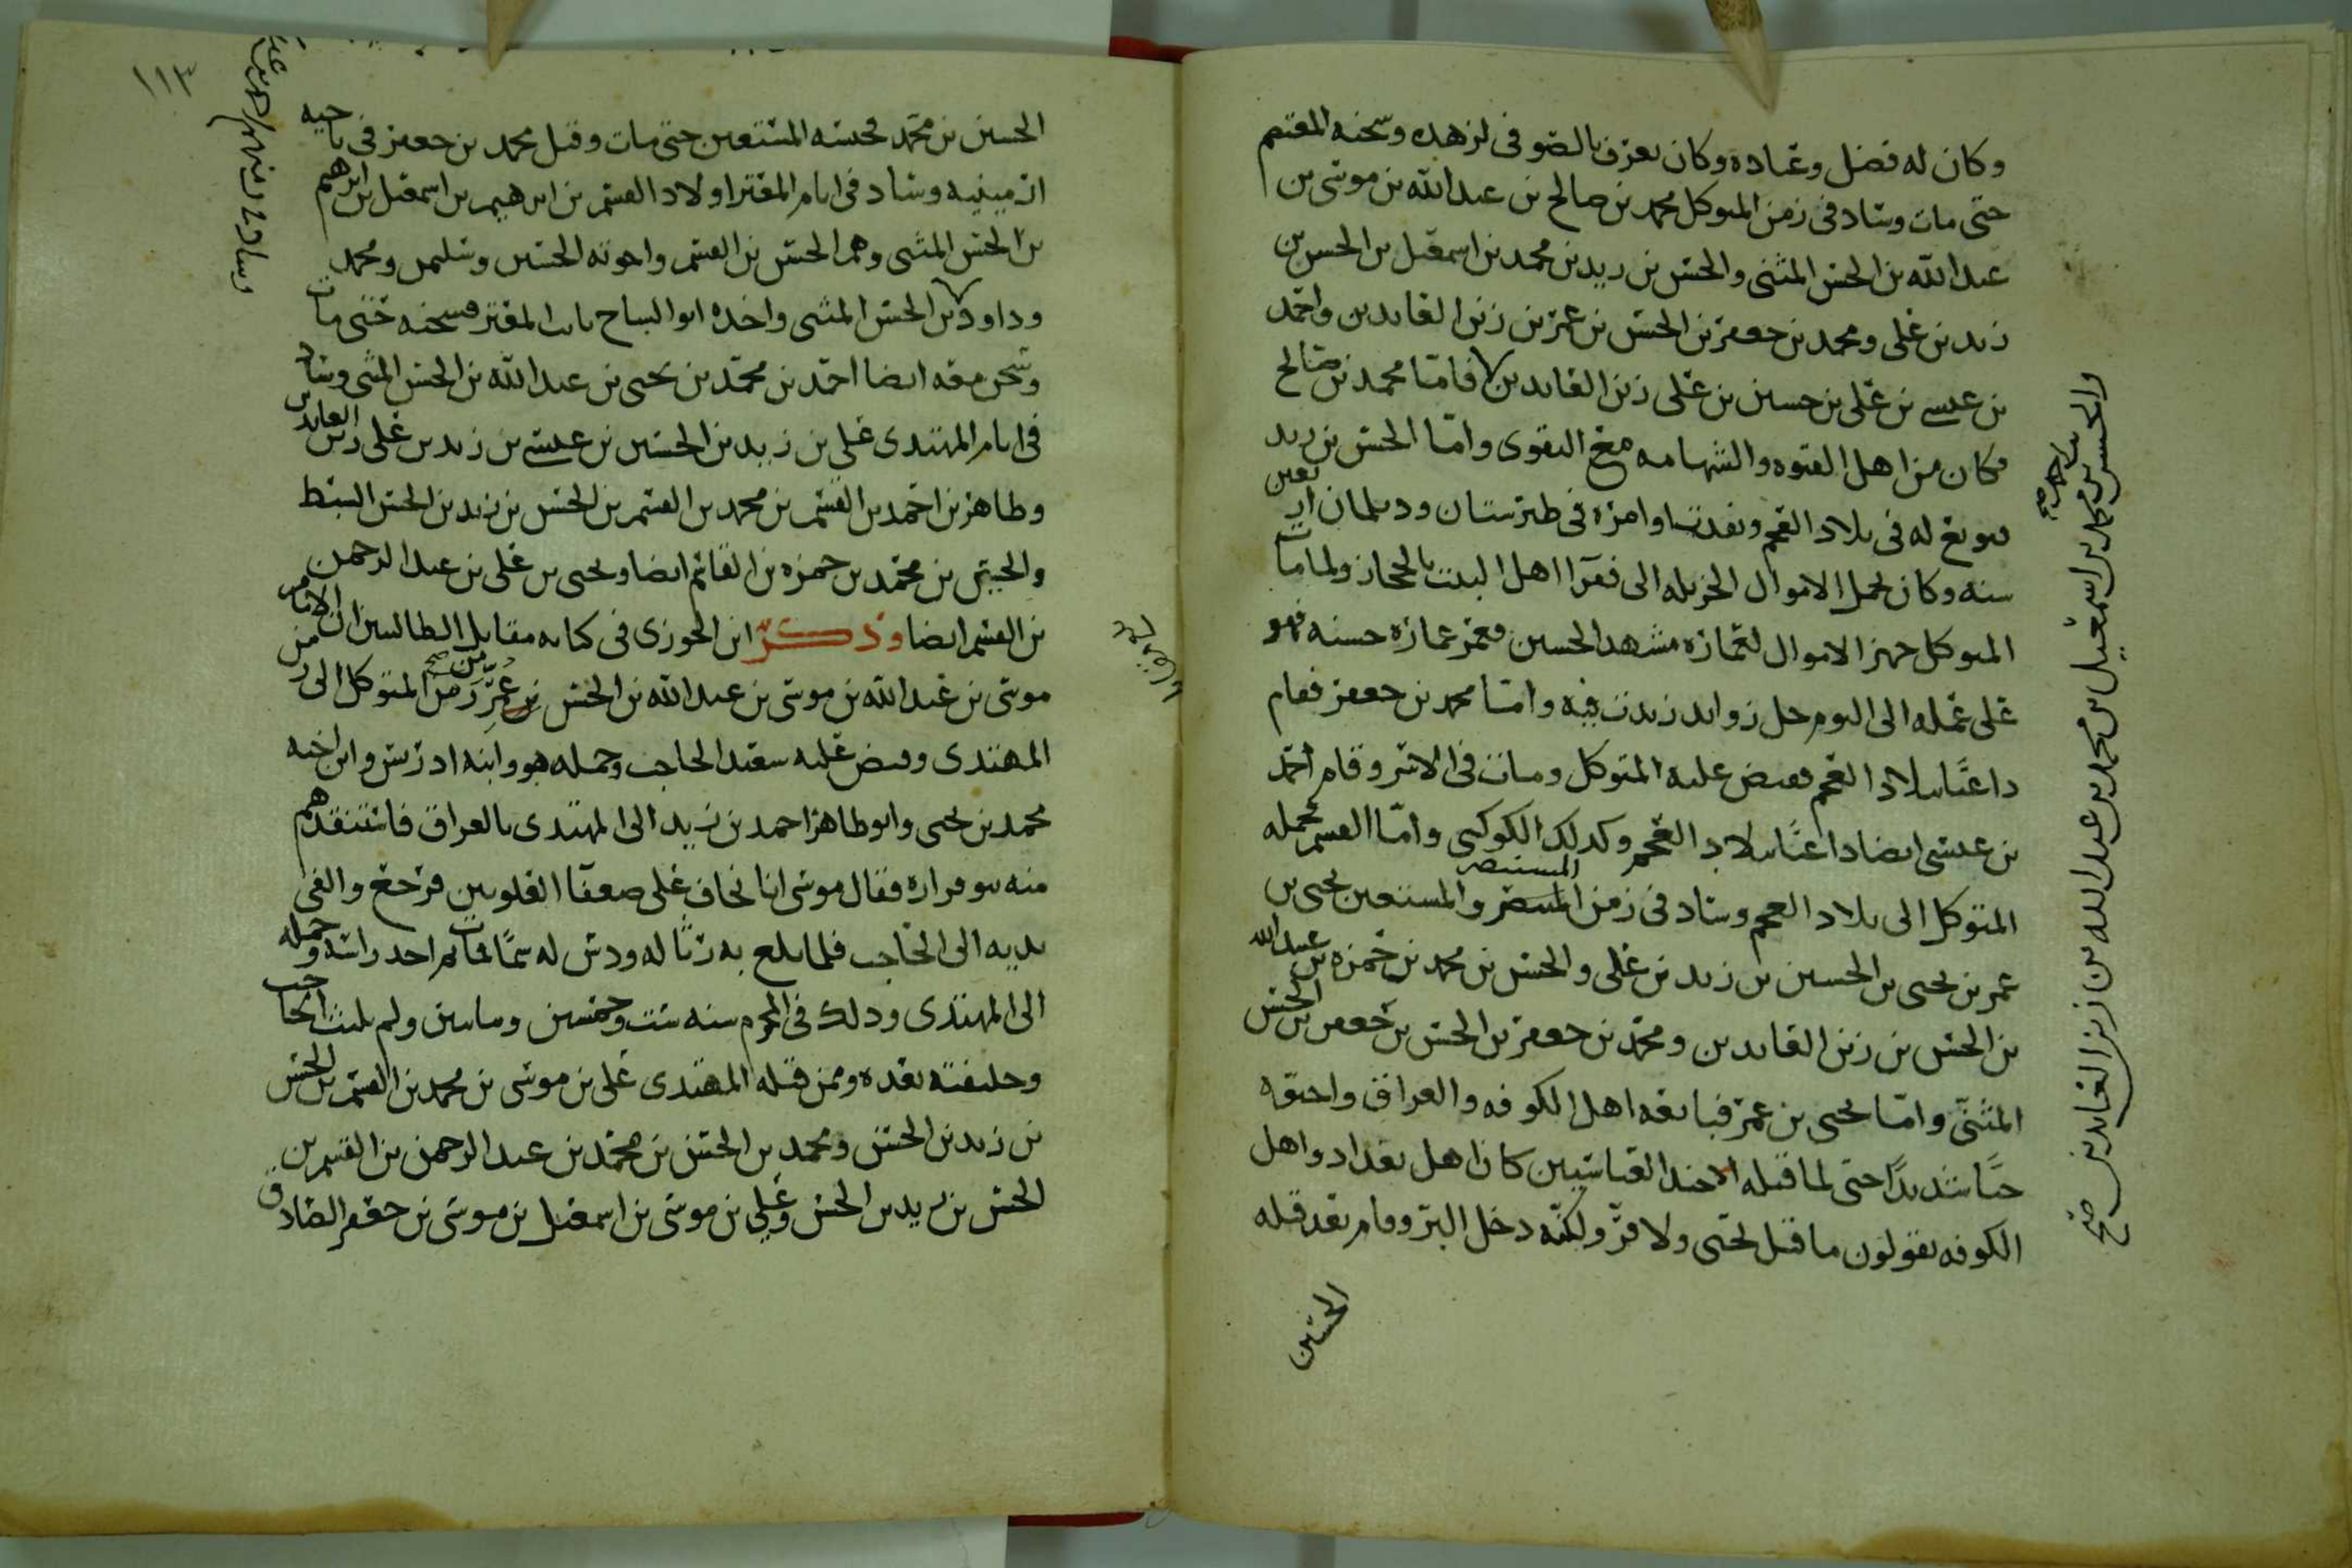 وكان له فضل وعباده وكان يعرف بالصوفي لزهده وسجنه المعتصم
حتى مات وساد في زمن المتوكل محمد بن صالح بن عبد الله بن موسى بن
عبد الله بن الحسن المثنى والحسن بن زيد بن محمد بن اسمعيل بن الحسن بن
زيد بن علي ومحمد بن جعفر بن الحسن بن عمر بن زين العابدين واحمد
بن عيسى بن علي بن حسين بن علي زين العابدين فاما محمد بن صالح
فكان من اهل الفتوه والشهامه مع التقوى واما الحسن بن زيد
فبويع له في بلاد العجم ونفدت اوامره في طبرستان وديلمان اربعين
سنه وكان يحمل الاموال الجزيله الى فقرا اهل البيت بالحجاز ولما مات
المتوكل جهز الاموال لعمارة مشهد الحسين فعمر عمارة حسنه فهو
على عمله الى اليوم خل زوايد زيدت فيه واما محمد بن جعفر فقام
داعيا ببلاد العجم فقبض عليه المتوكل ومات في الاسر وقام احمد
بن عيسى ايضا داعيا ببلاد العجم وكذلك الكوكبي واما القسم فحمله
المتوكل الى بلاد العجم وساد في زمن المستنصر والمستعين يحيى بن
عمر بن يحيى بن الحسين بن زيد بن علي والحسن بن محمد بن حمزه بن عبد الله
بن الحسن بن زين العابدين ومحمد بن جعفر بن الحسن بن جعفر بن الحسن
المثنى واما يحيى بن عمر فبايعه اهل الكوفه والعراق واحبوه
حبا شديدا حتى لما قتله الاجند العباسيين كان اهل بغداد واهل
الكوفه يقولون ما قتل يحيى ولا فر ولكنه دخل البر وقام بعد قتله
الحسين
والحسن بن محمد بن اسمعيل بن محمد بن عبد الله بن زين العابدين صح
١١٣
الحسين بن محمد فحبسه المستعين حتى مات وقتل محمد بن جعفر في ناحيه
ارمينيه وساد في ايام المعتز اولاد القسم بن ابرهيم بن اسمعيل بن ابرهيم
بن الحسن المثنى وهم الحسن بن القسم واخوته الحسين وسليمن ومحمد
وداود بن الحسن المثنى واخذه ابو الساج نايب المعتز فسجنه حتى مات
وسجن معه ايضا احمد بن محمد بن يحيى بن عبد الله بن الحسن المثنى وساد
في ايام المهتدى علي بن زيد بن الحسين بن عيسى بن زيد بن علي زين العابدين
وطاهر بن احمد بن القسم بن محمد بن القسم بن الحسن بن زيد بن الحسن السبط
والحسين بن محمد بن حمزه بن القاسم ايضا ويحيى بن علي بن عبد الرحمن
بن القسم ايضا وذكر ابن الجوزي في كتابه مقاتل الطالبيين ان الامام
موسى بن عبد الله بن موسى بن عبد الله بن الحسن فر من زمن المتوكل الى زمن
المهتدى وقبض عليه سعيد الحاجب وحمله هو وابنه ادريس وابن اخيه
محمد بن يحيى وابو طاهر احمد بن زيد الى المهتدى بالعراق فاستنقذهم
منه بنو فزاره فقال موسى انا نخاف على ضعفا العلويين فرجع والقى
بيديه الى الحاجب فلما بلغ به زبالة ودس له سما فمات ثم اخذ راسه وحمله
الى المهتدى وذلك في المحرم سنه ست وخمسين وماتين ولم يلبث الحاجب
وخليفته بعده وممن قتله المهتدى علي بن موسى بن محمد بن القسم بن الحسن
بن زيد بن الحسن ومحمد بن الحسن بن محمد بن عبد الرحمن بن القسم بن
الحسن بن زيد بن الحسن وعلي بن موسى بن اسمعيل بن موسى بن جعفر الصادق